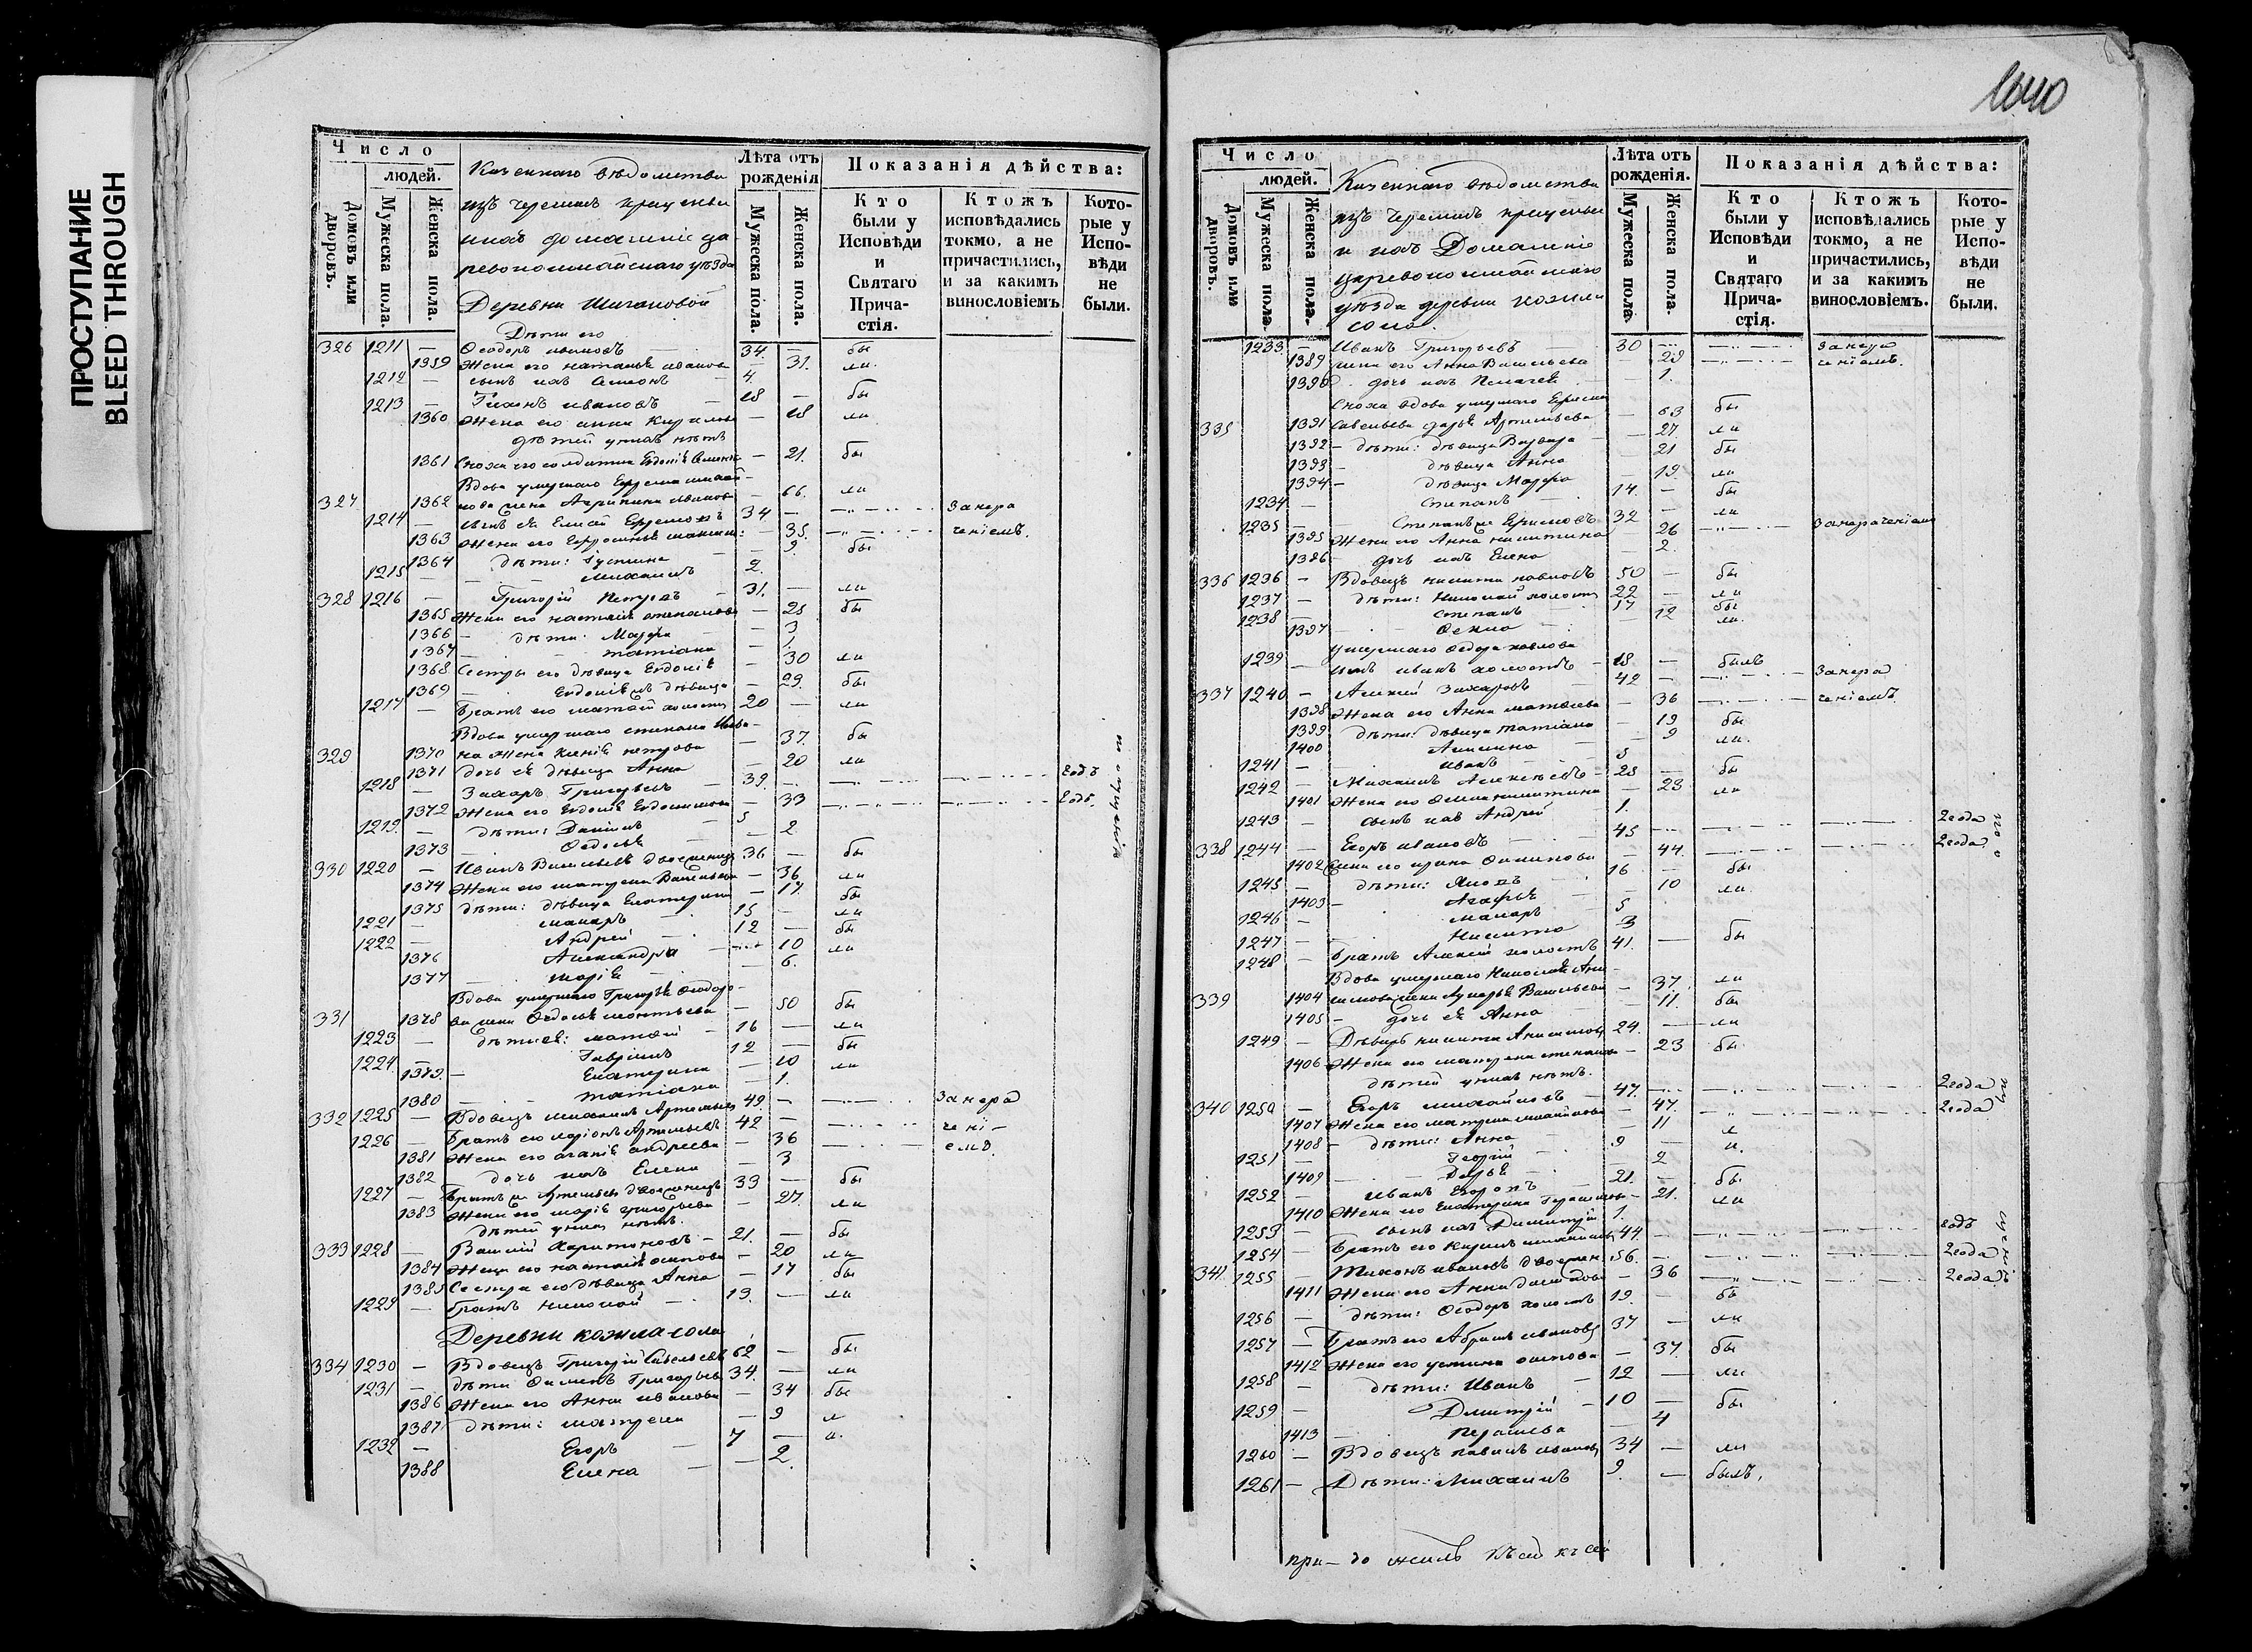 ПРОСТУПАНИЕ
BLEED THROUGH
Число
людей.
Домовъ или дворовъ.
Мужеска пола.
Женска пола.
Казеннаго вѣдомства
изъ черемисъ крещены
домашніе ца
ревококшайскаго уѣзда
Деревни
Лѣта отъ рожденія
Мужеска пола.
Женска пола.
Показанія дѣйства:
Кто были у Исповѣди и Святаго Причастія.
Ктожъ исповѣдались токмо, а не причастились, и за какимъ винословіемъ.
Которые у Исповѣди не были.
Дѣти его
326 1211 — Ѳеодоръ Ивановъ 34. — бы
1359 Жена его Наталья Иванова — 31. ли.
1212 — сынъ ихъ Семіонъ 4.
1213 — Тихонъ Ивановъ 28 — бы
1360 Жена его Анна Кирилова — 28 ли
дѣтей у нихъ нѣтъ
1361 Сноха его солдатка Евдокія — 21. бы
Вдова умершаго Ефрема
327 1362 жена Акрипина Иванова — 66. ли
1214 — сынъ ея Елисей Ефремовъ 34 — За нера
1363 Жена его Ефросинья — 35. ченіемъ.
1364 дѣти: Іустина — 9. бы
1215 — Михаилъ 2.
328 1216 — Григорій Петровъ 31. — ли
1365 Жена его Наталья Степанова — 28 бы
1366 — дѣти: Марѳа — 3
1367 — Татіана — 1.
1368 Сестры его дѣвица Евдокія — 30 ли
1369 — Евдокія дѣвица — 29. бы
1217 — Братъ его Матвей холостъ 20 — ли
Вдова умершаго Степана
329 1370 жена Ксенія Петрова — 37. бы
1371 дочь ея дѣвица Анна — 20 ли
1218 — Захаръ Григорьевъ 39. — годъ
1372 Жена его Евдокія Евдокимова — 33 годъ.
1219. — дѣти: Даніилъ 5
1373 — Ѳедосья — 2.
330 1220 — Иванъ Васильевъ двоеженецъ 36 — бы
1374 Жена его Матрена Васильева — 36 ли
1375 дѣти: дѣвица Екатерина — 17. бы
1221 — Макаръ 15 — ли
1222 — Андрей 12 — бы
1376 Александра — 10 ли
1377 — Марія — 6.
Вдова умершаго Григорья Ѳеодоро-
331 1378 ва жена Ѳедосья Леонтьева — 50 бы
1223 — дѣти ея: Матвей 16 — ли
1224. — Гавріилъ 12 — бы
1379. — Екатерина — 10 ли
1380 — Татіана — 1.
332 1225 — Вдовецъ Михаилъ Артемьевъ 49. — За нера
1226 — Братъ его Ларіонъ Артемьевъ 42 — чені-
1381 Жена его Агапія Андреева — 36 емъ.
1382 — дочь ихъ Елена — 3
1227 — Братъ Артемьевъ двоеженецъ 33 — бы
1383 Жена его Марія Григорьева — 27. ли
дѣтей у нихъ нѣтъ.
333 1228 — Василій Харитоновъ 21. — бы
1384 Жена его Наталья Осипова — 20 ли
1385 Сестра его дѣвица Анна — 17 бы
1229 — братъ Николай 13. — ли
Деревни Кожласола
334 1230 — Вдовецъ Григорій Савельевъ 62 — бы
1231 — дѣти Ѳилипъ Григорьевъ 34. — ли
1386 Жена его Анна Иванова — 34 бы
1387 дѣти: Матрена — 9 л
1232 — Егоръ 7 — и.
1388 Елена — 2.
1040
Число
людей.
Домовъ или дворовъ.
Мужеска пола.
Женска пола.
Казеннаго вѣдомства
изъ черемисъ крещены
и ихъ Домашніе
царевококшайскаго
уѣзда деревни Кожла
сола.
Лѣта отъ рожденія.
Мужеска пола.
Женска пола.
Показанія дѣйства:
Кто были у Исповѣди и Святаго Причастія.
Ктожъ исповѣдались токмо, а не причастились, и за какимъ винословіемъ.
Которые у Исповѣди не были.
1233 — Иванъ Григорьевъ 30 — За нера
1389 жена его Анна Васильева — 29 ченіемъ.
1390 дочь ихъ Пелагея — 1.
Сноха вдова умершаго
335 1391 Савельева Дарья Артемьева — 63 бы
1392 — дѣти: дѣвица Варвара — 27. ли
1393 — дѣвица Анна — 21 бы
1394 — дѣвица Марѳа — 19 ли
1234 — Степанъ 14. — бы
1235 — Степанъ 32 — ли
1395 Жена его Анна Никитина — 26 За нераченіемъ
1396 — дочь ихъ Елена — 2.
336 1236 — Вдовецъ Никита Павловъ 50 — бы
1237 — дѣти: Николай холостъ 22 — ли
1238 — Степанъ 17 бы
1397 — 12 ли.
умершаго Ѳедора Павлова
1239 — сынъ Иванъ холостъ 18 — былъ
337 1240 — Алексей Захаровъ 42 — За нера
1398 Жена его Анна Матвеева — 36 ченіемъ
1399 дѣти: дѣвица Татіана — 19 бы
1400 Акилина — 9 ли.
1241 — Иванъ 5
1242 — Михаилъ Алексеевъ 25 — бы
1401 Жена его Никитина — 23 ли
1243 — сынъ ихъ Андрей 1.
338 1244 — Егоръ Ивановъ 45 2 года
1402 Жена его Ирина — 44. 2 года
1245 — дѣти: 16 — бы
1403 — Агафья — 10 ли.
1246 — Макаръ 5
1247 — Никита 3
1248 — Братъ Алексей холостъ 41. — бы
Вдова умершаго Николая
339 1404 жена Васильева — 37. ли
1405 — дочь ея Анна — 11. бы
1249 — Деверь Никита 24. — ли
1406 Жена его Матрена Степанова — 23 бы
дѣтей у нихъ нѣтъ.
340 1250 — Егоръ Михайловъ 47. 2 года
1407 Жена его Матрена — 47. 2 года
1408 — дѣти: Анна — 11 л
1251 — Георгій 9 — и.
1409 — Дарья — 2
1252 — Иванъ Егоровъ 21. — бы
1410 Жена его Екатерина Герасимова — 21. ли
1253 — сынъ ихъ Димитрій 1.
1254 — Братъ его 44. — годъ
341. 1255 — Тихонъ Ивановъ двоежен. 56. — 2 года
1411 Жена его Анна — 36 2 года
1256 — дѣти: Ѳеодоръ холостъ 19. — бы
1257 — Братъ его Абрамъ Ивановъ 37 — ли
1412 Жена его Устина Осипова — 37. бы
1258 — дѣти: Иванъ 12 — ли
1259 — Дмитрій 10 — бы
1413 — — 4
1260 — Вдовецъ Павелъ Ивановъ 34 — ли
1261 — Дѣти: Михаилъ 9. — былъ.